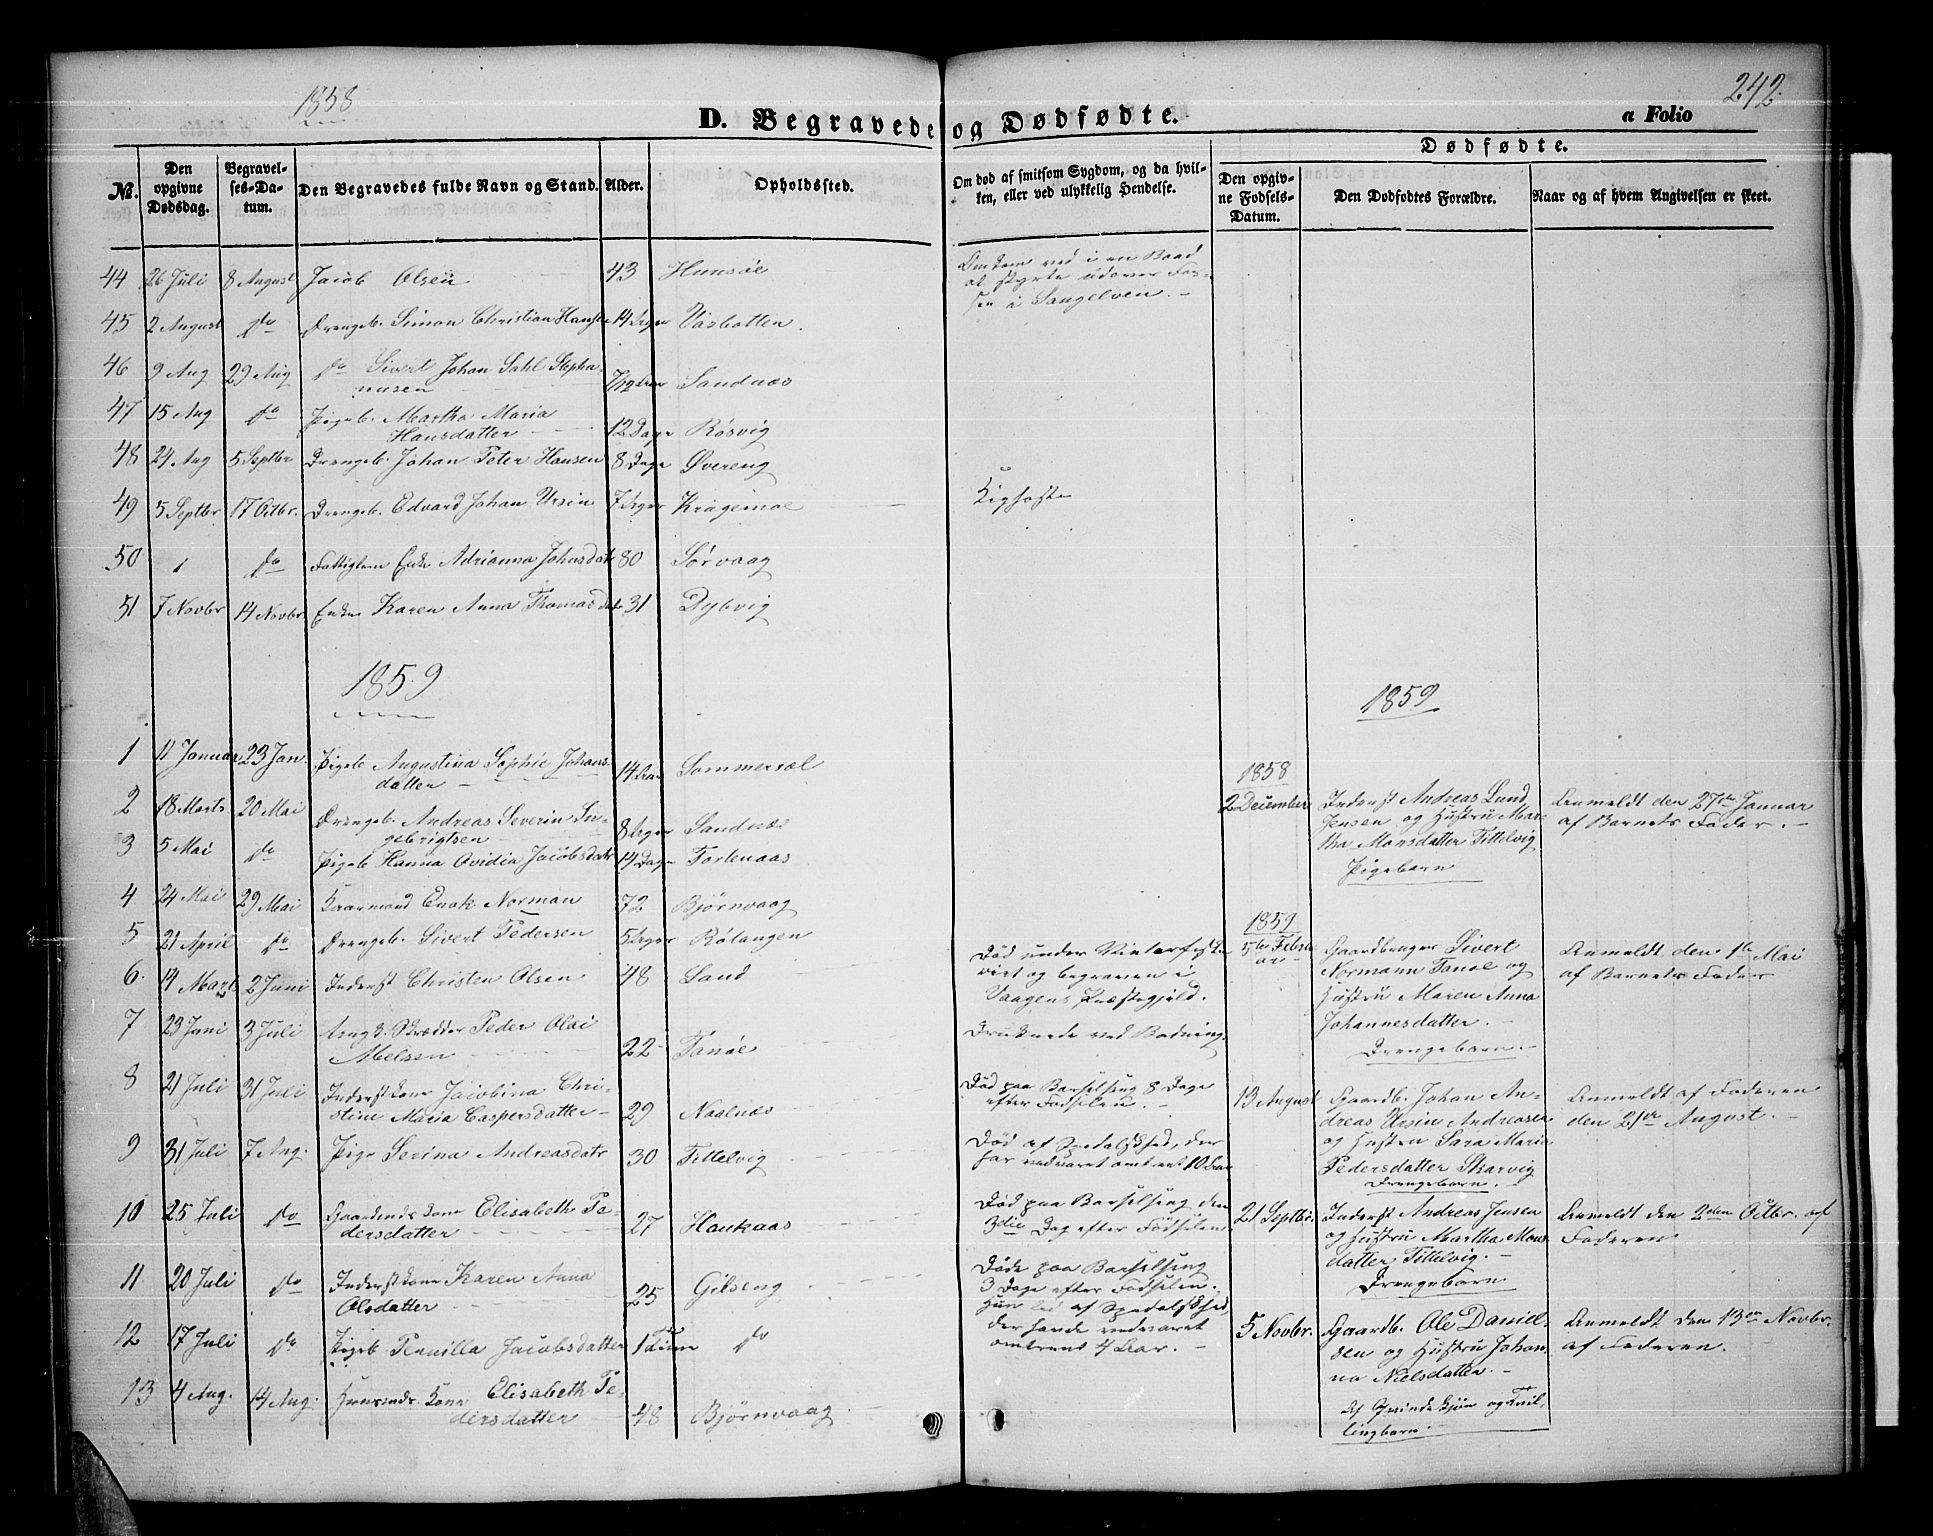 1858
242.
D. Begravede og Dødfødte.
a Folio
Dødfødte.
No.
Den opgivne Dødsdag.
Begravelses-Datum.
Den Begravedes fulde Navn og Stand.
Alder.
Opholdssted.
Om død af smitsom Sygdom, og da hvilken, eller ved ulykkelig Hendelse.
Den opgivne Fødsels-Datum.
Den Dødfødtes Forældre.
Naar og af hvem Angivelsen er skeet.
44 26 Juli 8 August Jacob Olsen 43 Hunsøe Omkom ved i en Baad
at styrte udover Fossen i Sangelven. -
45 2 August do Drengeb. Simon Christian Hansen 14 Uger Vasbotten.
46 9 Aug 29 Aug do Sivert Johan Dahl Stephanusen 7/12 Aar Sandnæs
47 15 Aug do Pigeb. Martha Maria
Hansdatter 12 Dage Røsvig
48 24 Aug 5 Septbr Drengeb. Johan Peter Hansen 8 Dage Øvereng
49 5 Septbr 17 Octbr. Drengeb. Edvard Johan Ursin 7 Uger Kragemoe Kighoste
50 do Fattiglem Enke Adrianna Johnsdatr 80 Sørvaag
51 7 Novbr 14 Novbr Enke Karen Anna Thomasdatr 31 Dybvig
1859
1859
1 11 Januar 23 Jan. Pigeb Augustina Sophie Johansdatter 14 Aar Sommersæl
2 18 Marts 20 Mai Drengeb. Andreas Severin Ingebrigtsen 8 Uger Sandnæs
3 5 Mai do Pigeb Hanna Ovidia Jacobsdatr 14 Dage Fortenaas
4 24 Mai 29 Mai Kaarmand Enok Norman 72 Bjørnvaag
5 21 April do Drengeb. Sivert Pedersen 5 Uger Rølangen
6. 14 Marts 2 Juni Inderst Christen Olsen 48 Sand Død under Vinterfiskeriet og begraven i
Vaagens Præstegjeld.
7 23 Juni 3 Juli Ung k. Skrædder Peder Olai
Melsen 22 Tanøe Druknede ved Badning.
8 21 Juli 31 Juli Inderstkone Jacobina Christine Maria Caspersdatter 29 Naalnæs Død paa Barselseng 8 Dage
efter Fødselen. -
9 31 Juli 7 Aug. Pige Serina Andreasdatr 30 Tittelvig Død af Spedalskhed, der
har vedvaret omtrent 10 Aar
10 25 Juli do Gaardmds Kone Elisabeth Pedersdatter 27 Haukaas Død paa Barselseng den
3die Dag efter Fødselen
11 20 Juli do Inderstkone Karen Anna
Olsdatter 25 Gilseng Døde paa Barselseng
3 Dage efter Fødselen.
Hun led af Spedalskhed,
der havde vedvaret
omtrent 4 Aar. -
12 17 Juli do Pigeb Pernilla Jacobsdatter 1 Time do
13 4 Aug. 14 Aug. Huusmds Kone Elisabeth Pedersdatter 48 Bjørnvaag
1858
2 December Inderst Andreas Lund
Jensen og Hustru Martha Monsdatter Tittelvig
Pigebarn
Anmeldt den 27de Januar
af Barnets Fader. -
1859
5te Februar Gaardbruger Sivert
Normann Tanøe og
Hustru Maren Anna
Johannesdatter. -
Drengebarn. -
Anmeldt den 1te Mai
af Barnets Fader
13 August Gaardb. Johan Andreas Ursin Andreasen
og Hustru Sara Maria
Pedersdatter Skarvig
Drengebarn. -
Anmeldt af Faderen
den 21de August. -
21 Septbr. Inderst Andreas Jensen
og Hustru Martha Monsdatter Tittelvig. -
Drengebarn
Anmeldt den 2den Octbr. af
Faderen
5 Novbr. Gaardb. Ole Danielsen og Hustru Johanna Nielsdatter. -
Af Qvindekjøn og Tvillingbarn.
Anmeldt den 13de Novbr.
af Faderen.